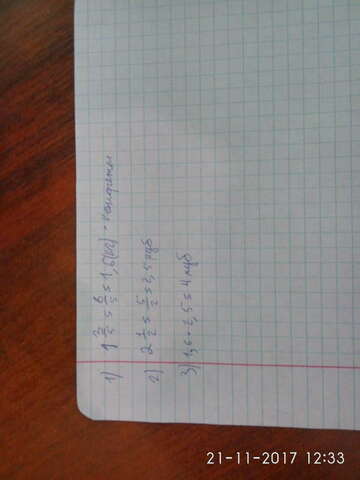 1) 1 3/5 = 8/5 = 1,6(кг) - конфеты
2) 2 1/2 = 5/2 = 2,5 руб
3) 1,6 · 2,5 = 4 руб
21-11-2017 12:33